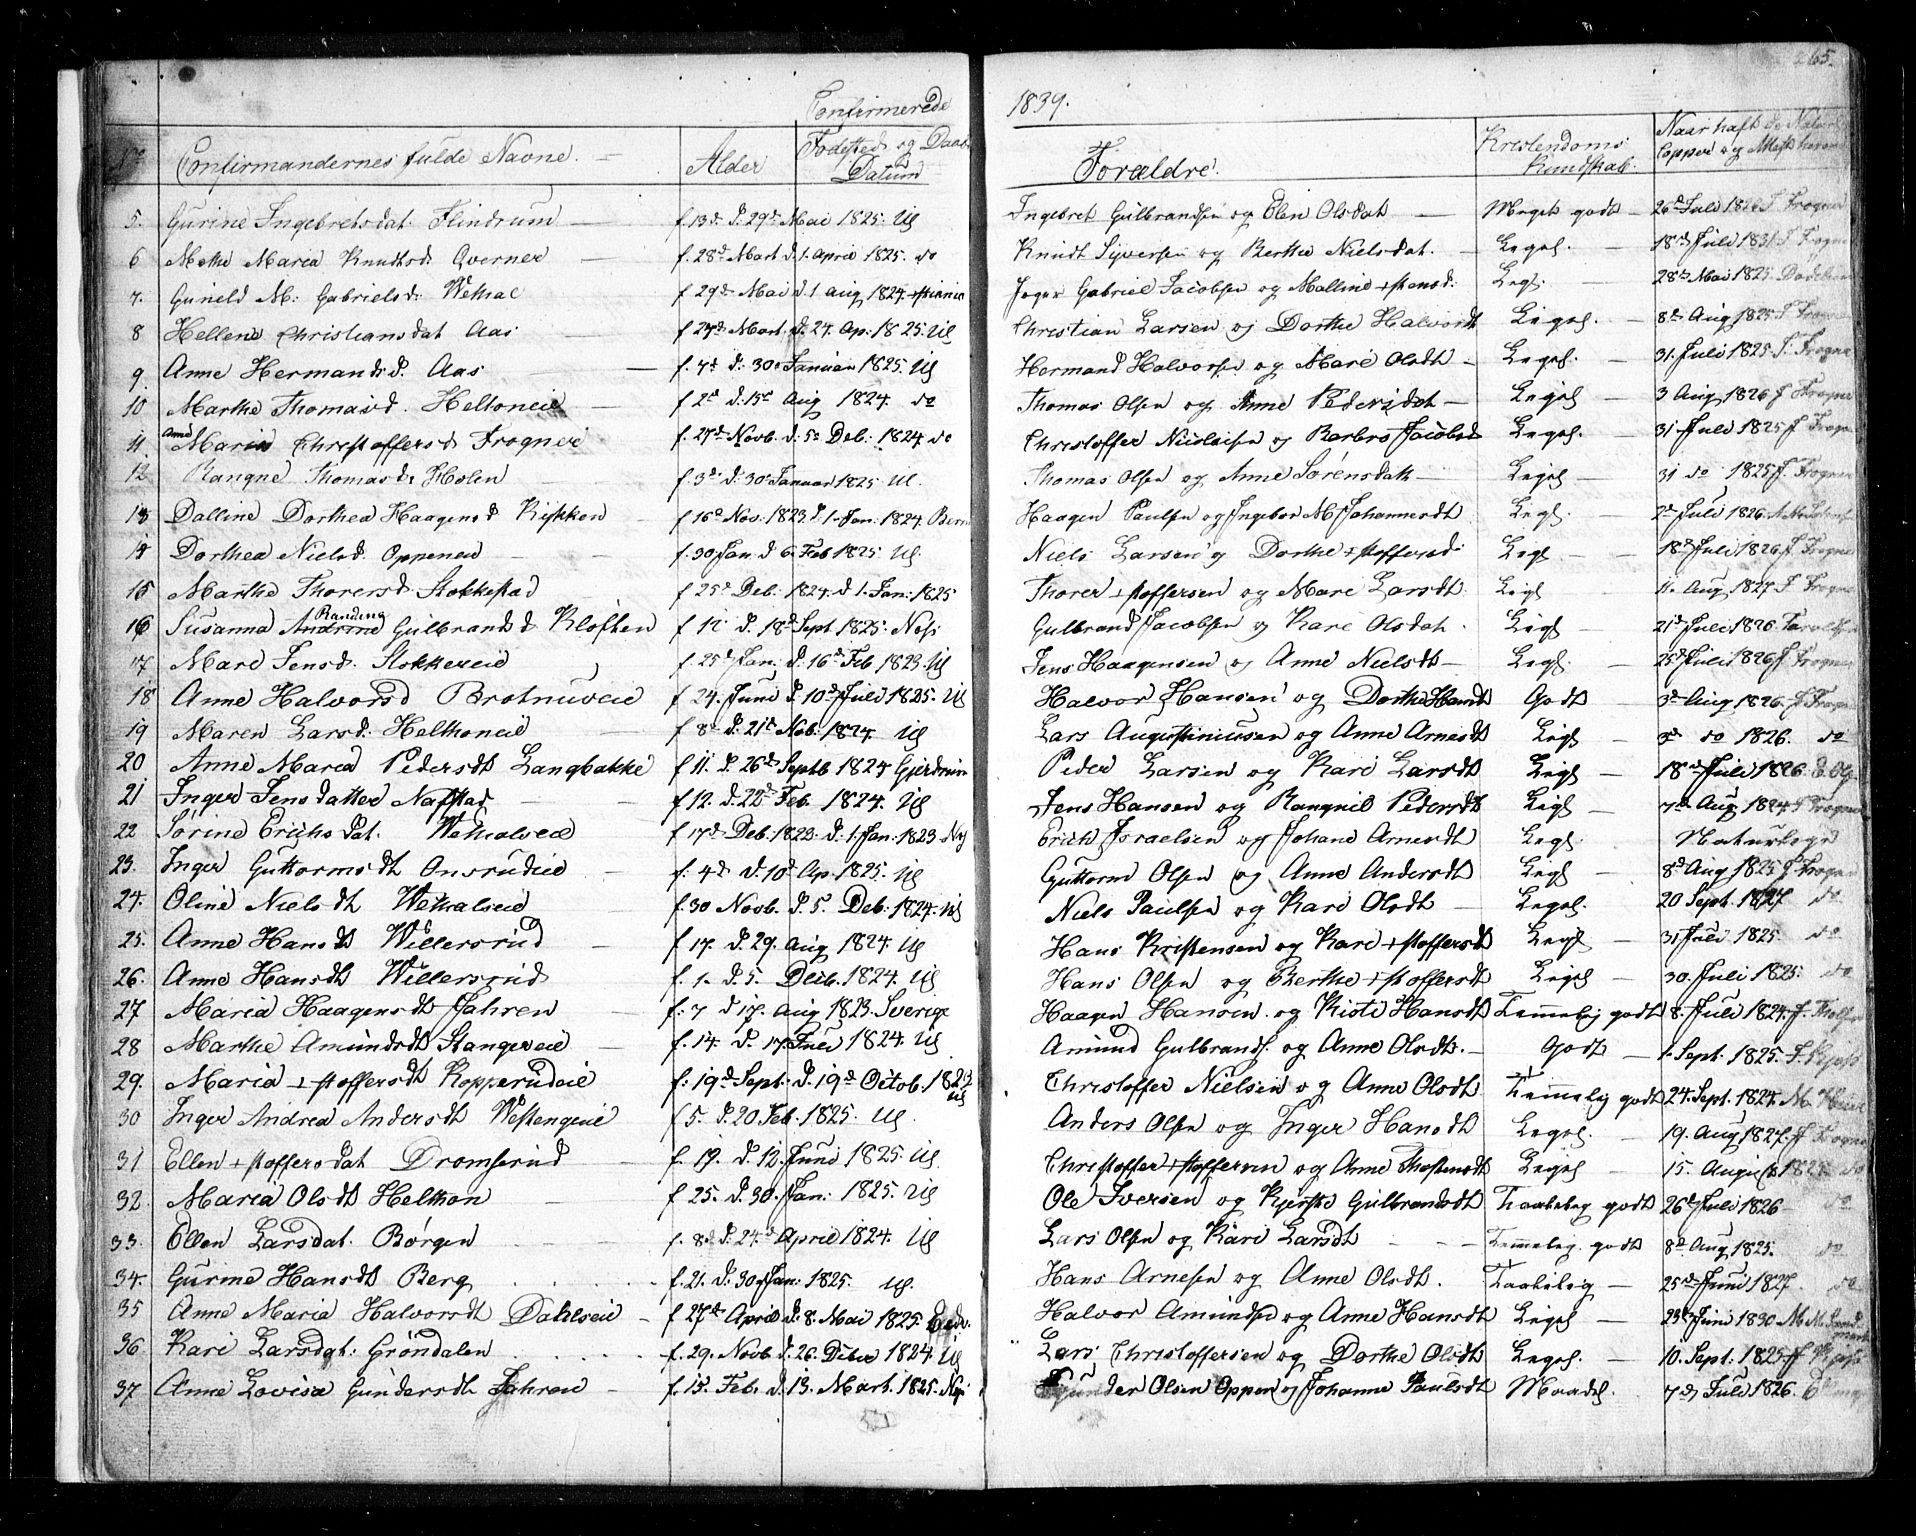 265.
Confirmerede 1839.
No Confirmandernes fulde Navne. Alder Fødested og Daabs Datum Forældre. Kristendoms Kundskab. Naar haft de Naturl. Copper og Attest herom
5. Gurine Ingebretsdat. Flindrum f. 13d d. 29d Mai 1825. Us Ingebret Gulbrandsen og Elen Olsdat Meget godt 26d Juli 1826 J Frogner
6 Mathe Maria Knudtsd. Qverner f. 28d Mart d. 1. April 1825. do Knudt Syversen og Berthe Nielsdat. Eegel. 18d Juli 1831 J Frogner
7. Guneld M. Gabrielsd. Wethal f 29d Mai d. 1 Aug 1824. Joger Gabriel Jacobsen og Mallene +stensd. Eegl. 28d Mai 1825.
8 Hellene Christiansdat Aas f 27d Mart. d. 24. Ap. 1825. Us Christian Larsen og Dorthe Halvordt Eegel. 8d Aug 1825 J Frogner
9. Anne Hermandsd. Aas f. 4d d. 30 Januar 1825. Us Hermand Halvorsen og Mari Olsdt Eegel. 31. Juli 1825. J. Frogner
10 Marthe Thomasd. Heltoneie f. 2d d. 15d Aug 1824. do Thomas Olsen og Anne Pedersdat Eegel 3 Aug 1826 J Frogner
11. Maria Christoffersd Frogner f. 27d Novb. d. 5 Deb. 1824. do Christoffer Nicolaisen og Barbro Jacobsd Eegel. 31 Juli 1825 J Frogner
12 Rangne Thomasd. Holen f. 3d d. 30 Januar 1825. Us. Thomas Olsen og Anne Sørensdatt Eegel 31 do 1825 J. Frogner
13 Dalline Dorthea Haagensd Kiskken f 16d Nov. 1823. d. 1. Jan. 1824. Haagen Paulsen og Ingebor M Johannesdt Eegl. 2d Juli 1826.
14 Dorthea Nielsd. Oppeneie f. 30 Jan. d 6. Feb 1825. Us. Niels Larsen og Dorthe +stoffersd. Eegl 18d Juli 1826 J Frogner
15 Marthe Thorersd. Stokkestad f 25d Deb. 1824. d 1. Jan. 1825 Thorer +stoffersen og Mari Larsdt Eigl 11. Aug 1827 J Frogner
16 Susanna Andrine Randine Gulbrandsd Kløften f 11 d. 18d Sept 1825. Nesi Gulbrand Jacobsen og Kari Olsdat. Eegl 21d Juli 1826.
17 Mari Jensd. Stokkereie f 25d Jan. d. 16d Feb 1823. Us Jens Haagensen og Anne Nielsdt Eegl. 25d Juli 1826 J Frogner
18 Anne Halvorsd Brotnuveie f 24. Juni d. 10d Juli 1825. Us Halvor Hansen og Dorthe Hansdt Godt 3d Aug 1826. J Frogner
19 Maren Larsd. Helthoneie f 8d d. 21d Nob. 1824. Us Lars Augustinusen og Anne Arnesdt Eegl 3d do 1826. do
20 Anne Maria Pedersdt Langbakke f 11. d. 26d Septb 1824 Gjerdrum Peder Larsen og Kari Larsdt Eegl 18d Juli 1826.
21 Inger Jensdatter Nafstad f 12. d. 22d Feb. 1824. Us Jens Hansen og Ranquil Pedersdt Eegl 7d Aug 1824 J Frogner
22 Sørine Erichsdat. Wethalseie f 17d Deb. 1823. d. 1. Jan. 1823 Nes Erich Israelsen og Johane Arnesdt Eegl. Naturlege
23. Inger Guttormsdt Onsrudeie f. 4d d. 10d Ap. 1825. Us Guttorm Olsen og Anne Andersdt Eegl 8d Aug 1825 J Frogner
24. Oline Nielsdt Wethalseie f. 30 Novb. d. 5. Deb. 1824. Us Niels Paulsen og Kari Olsdt Eegel. 20 Sept. 1827 do
25. Anne Hansdt Willersrud f 17. d. 29. Aug 1824. Us Hans Kristensen og Kari +stoffersdt Eegl 31 Juli 1825. do
26. Anne Hansdt Willersrud f. 1. d. 5. Deb. 1824. Us Hans Olsen og Berthe +stoffersdt Eegel 30. Juli 1825. do
27 Maria Haagensdt Jahren f. 7 d 17. Aug 1823. Sverige Haagen Hansen og Kisti Hansdt Temmelig godt 8. Juli 1824.
28 Marthe Amundsdt Stangereie f. 14. d. 17. Juli 1824. Us Amund Gulbrands. og Anne Olsdt. Godt 1. Sept. 1825.
29. Maria +stoffersdt Kopperudeie f. 19d Sept. d. 19d Octob. 1823 Us Christoffer Nielsen og Anne Olsdt Temmelig godt 24. Sept. 1824.
30 Inger Andrea Andersdt Westengeie f 5. d. 20. Feb. 1825. Us. Anders Olsen og Inger Hansdt Eegel. 19. Aug 1827. J Frogner
31 Ellen +stoffersdat Dromserud f. 19. d. 12. Juni 1825. Us. Christoffer +stoffersen og Anne Thostensdt Eegel 15. August 1825 do
32. Maria Olsdt Helthon f. 25. d. 30. Jan. 1825. Us Ole Iversen og Kjersti Gulbrandsdt Taaleleg godt 26d Juli 1826 do
33. Ellen Larsdat. Børgen f. 8d d. 24. April 1824. Us Lars Olsen og Kari Larsdt Temmeleg godt 8d Aug 1825. do
34. Gurine Hansdt Berg f. 21. d. 30 Jan. 1825. Us. Hans Arnesen og Anne Olsdt. Taaleleg 25d Juni 1827. do
35 Anne Maria Halvorsdt Dahlseie f 27d April d. 8. Mai 1825. Halvor Amundsen og Anne Hansdt Eegel 23d Juni 1830
36. Kari Larsdat. Grøndalen f. 29. Novb. d. 26. Deber 1824. Us Lars Christoffersen og Dorthe Olsdt Eegel. 10. Sept. 1825
37 Anne Lovise Gundersdt Jahren f. 15. Feb. d. 13. Mart. 1825. Nesi Gunder Olsen Oppen og Johanne Paulsdt Maadel. 7d Juli 1826.